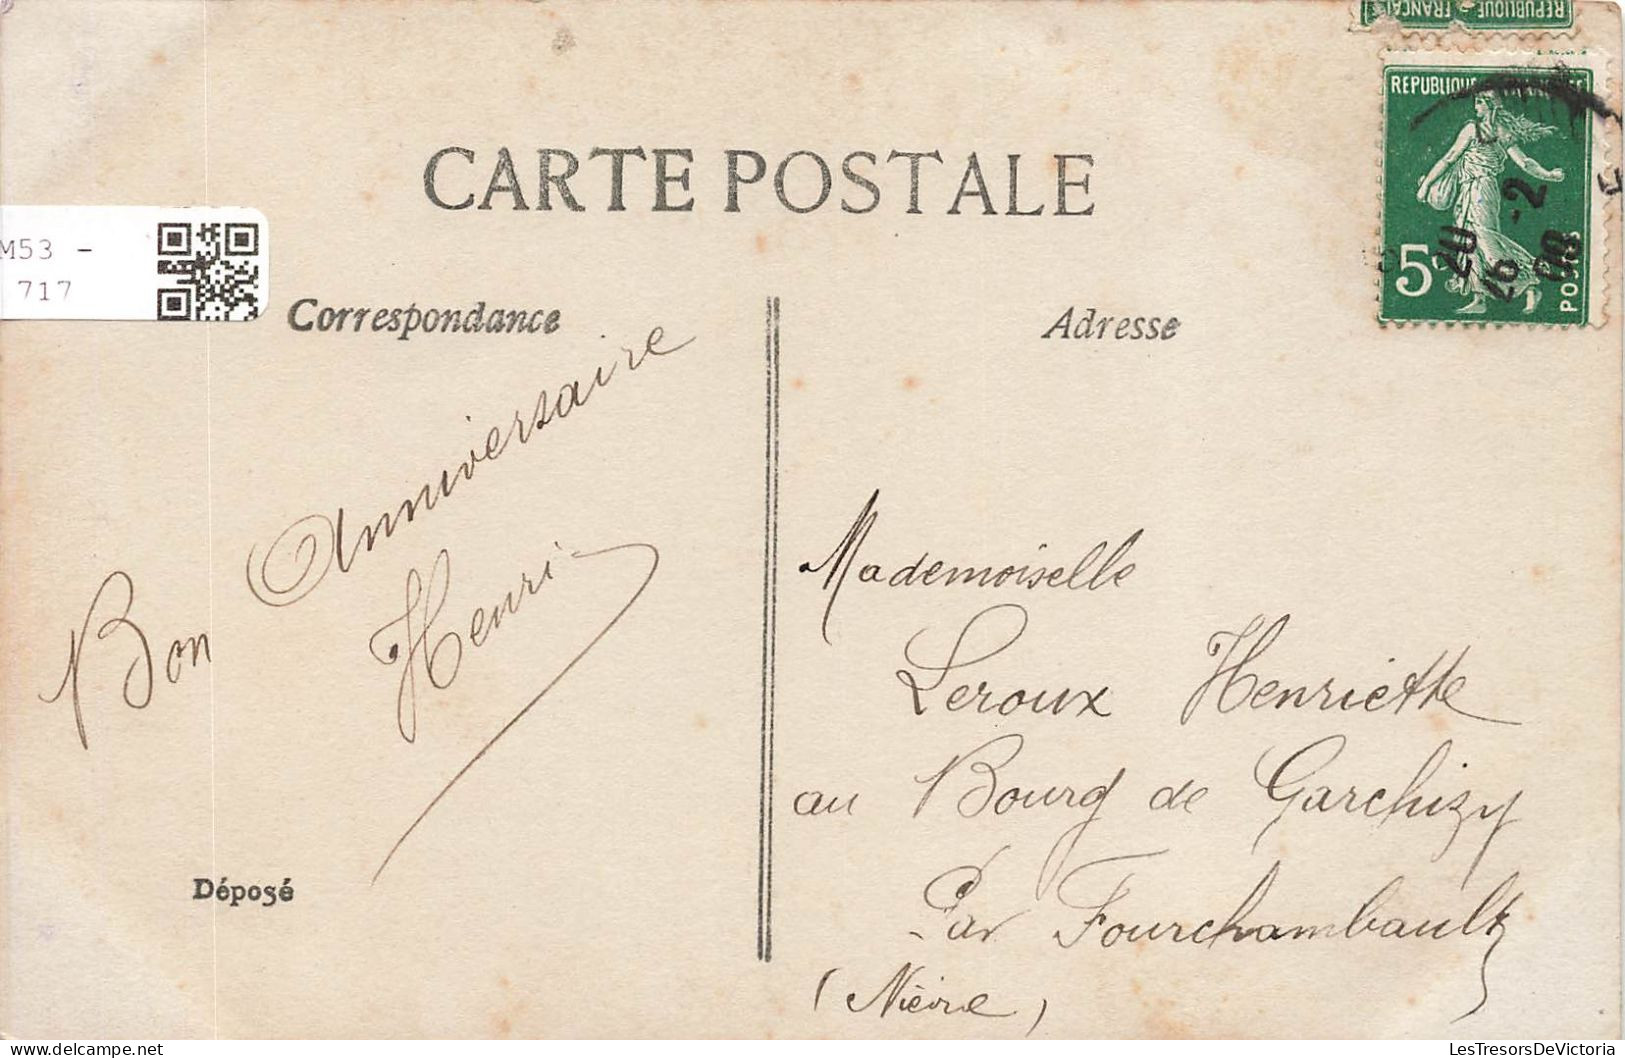 REPUBLIQUE FRANÇAI
REPUBLIQUE
5c
POSTES
20
-2
16
08
CARTE POSTALE
M53 -
717
Correspondance
Adresse
Bon Anniversaire
Henri
Mademoiselle
Leroux Henriette
au Bourg de Garchizy
Par Fourchambault
(Nièvre)
Déposé
LesTresorsDeVictoria